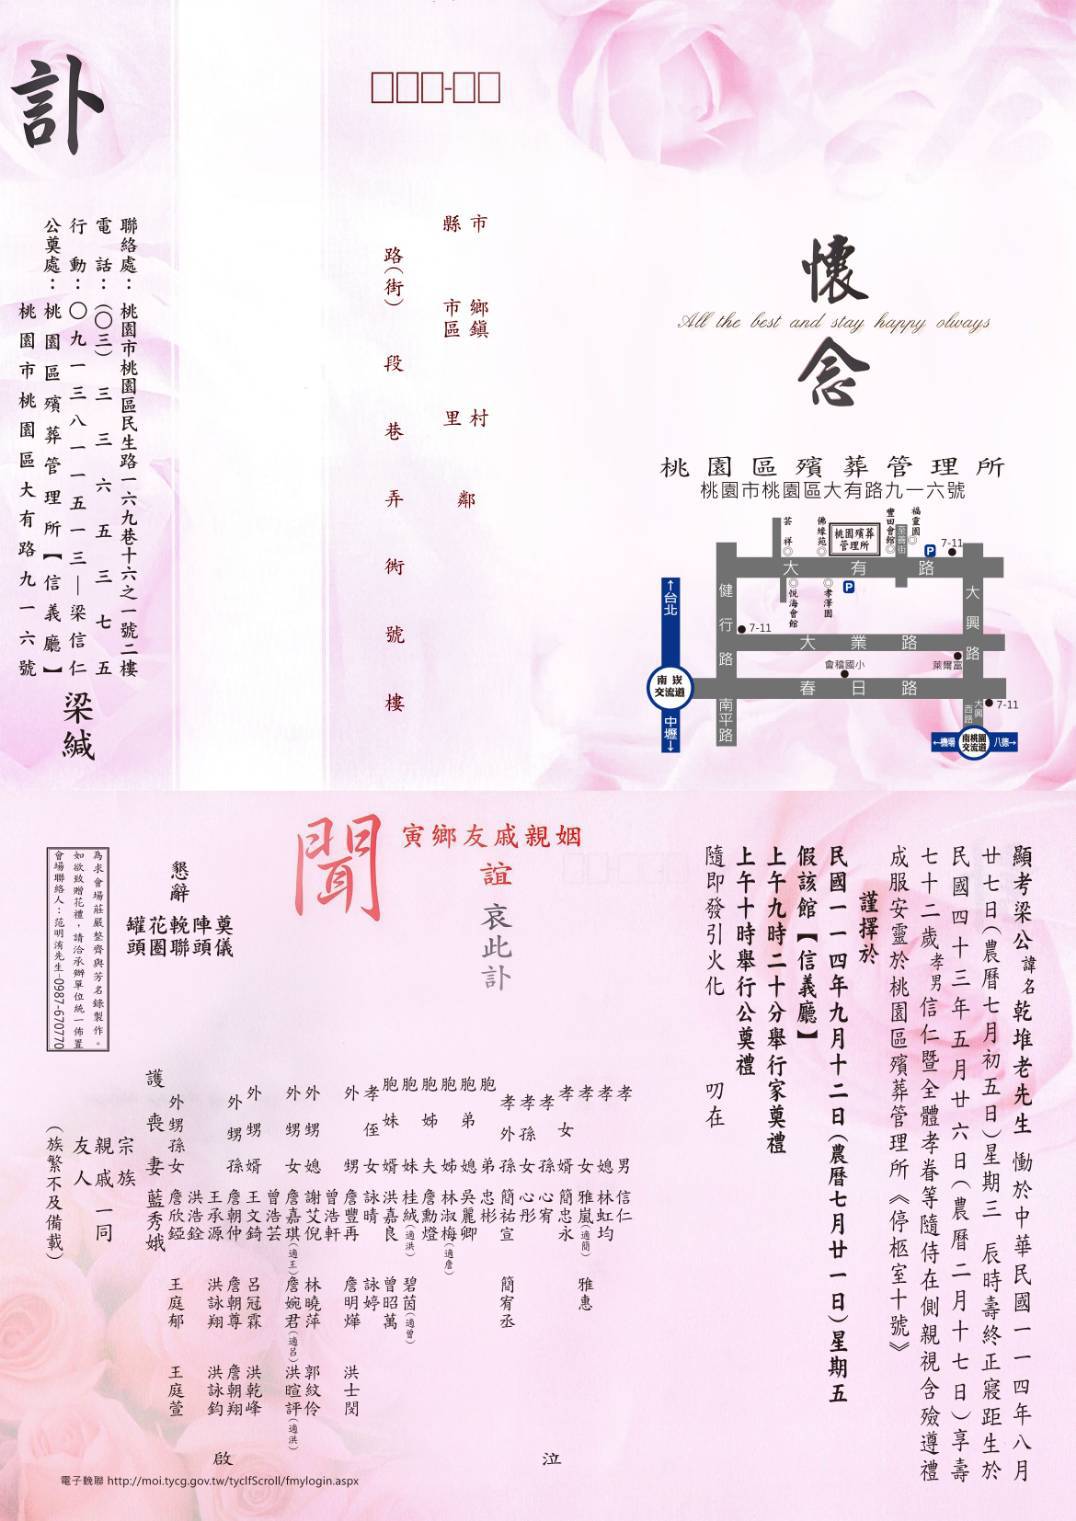 訃
聯絡處：桃園市桃園區民生路一六九巷十六之一號二樓
電話：(〇三)三三六五三七五
行動：〇九一三八一一五一三—梁信仁
公奠處：桃園區殯葬管理所【信義廳】
桃園市桃園區大有路九一六號
梁緘
□□□-□□
市 鄉鎮 村
縣 市區 里 鄰
路(街) 段 巷 弄 衖 號 樓
懷
All the best and stay happy olways
念
桃園區殯葬管理所
桃園市桃園區大有路九一六號
芸祥
佛緣苑
桃園殯葬管理所
豐田會館
至善街
福靈園
P
7-11
大有路
悅海會館
孝澤園
P
↑台北
健行路
7-11
大業路
大興路
會稽國小
萊爾富
南崁交流道
春日路
中壢↓
南平路
大興西路
7-11
←機場
南桃園交流道
八德→
顯考梁公諱名乾堆老先生 慟於中華民國一一四年八月
廿七日(農曆七月初五日)星期三 辰時壽終正寢距生於
民國四十三年五月廿六日(農曆二月十七日)享壽
七十二歲孝男信仁暨全體孝眷等隨侍在側親視含殮遵禮
成服安靈於桃園區殯葬管理所《停柩室十號》
謹擇於
民國一一四年九月十二日(農曆七月廿一日)星期五
假該館【信義廳】
上午九時二十分舉行家奠禮
上午十時舉行公奠禮 叨在
隨即發引火化
姻親戚友鄉寅
誼
哀此訃
聞
懇辭
奠儀
陣頭
輓聯
花圈
罐頭
為求會場莊嚴整齊與芳名錄製作。
如欲致贈花禮，請洽承辦單位統一佈置
會場聯絡人：范明洧先生-0987-670770
孝男 信仁
孝媳 林虹均
孝女 雅嵐(適簡) 雅惠
孝女婿 簡忠永
孝孫 心宥
孝孫女 心彤
孝外孫 簡祐宣 簡宥丞
胞弟 忠彬
胞弟媳 吳麗卿
胞姊 林淑梅(適詹)
胞姊夫 詹勳燈
胞妹 桂絨(適洪) 碧茵(適曾)
胞妹婿 洪嘉良 曾昭萬
孝侄女 詠晴 詠婷
外甥 詹豐再 詹明燁 洪士閔
曾浩軒
外甥媳 謝艾倪 林曉萍 郭紋伶
外甥女 詹嘉琪(適王) 詹婉君(適呂) 洪暄評(適洪)
曾浩芸
外甥婿 王文錡 呂冠霖 洪乾峰
外甥孫 詹朝仲 詹朝尊 詹朝翔
王承源 洪詠翔 洪詠鈞
洪浩銓
外甥孫女 詹欣鎰 王庭郁 王庭萱
護喪妻 藍秀娥
泣
啟
宗族
親戚
友人
一同
(族繁不及備載)
電子輓聯 http://moi.tycg.gov.tw/tyclfScroll/fmylogin.aspx